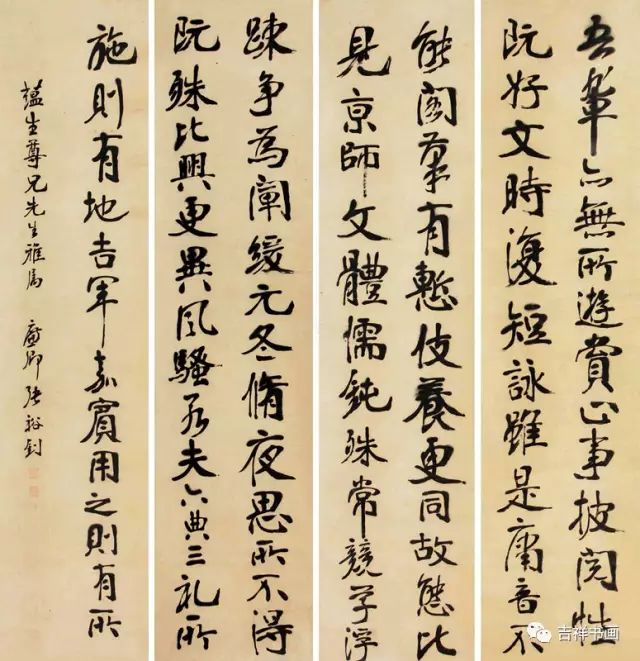 吾輩亦無所遊賞止事披閱性
既好文時復短詠雖是庸音不
能閣筆有慙伎養更同故態比
見京師文體儒鈍殊常競学浮
踈争為闡緩元冬脩夜思所不得
既殊比興更異風騷若夫六典三礼所
施則有地吉軍嘉賓用之則有所
蕴生尊兄先生雅屬 廉卿張裕釗
吉祥书画